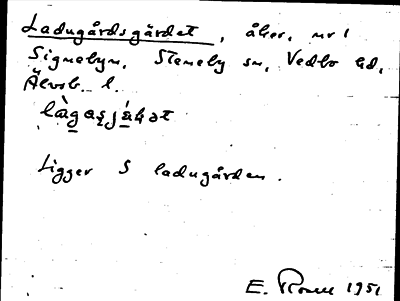 Ladugårdsgärdet, åker, nr 1
Signebyn, Steneby sn, Vedbo hd,
Älvsb. l.
Ligger S ladugården.
E. 1951